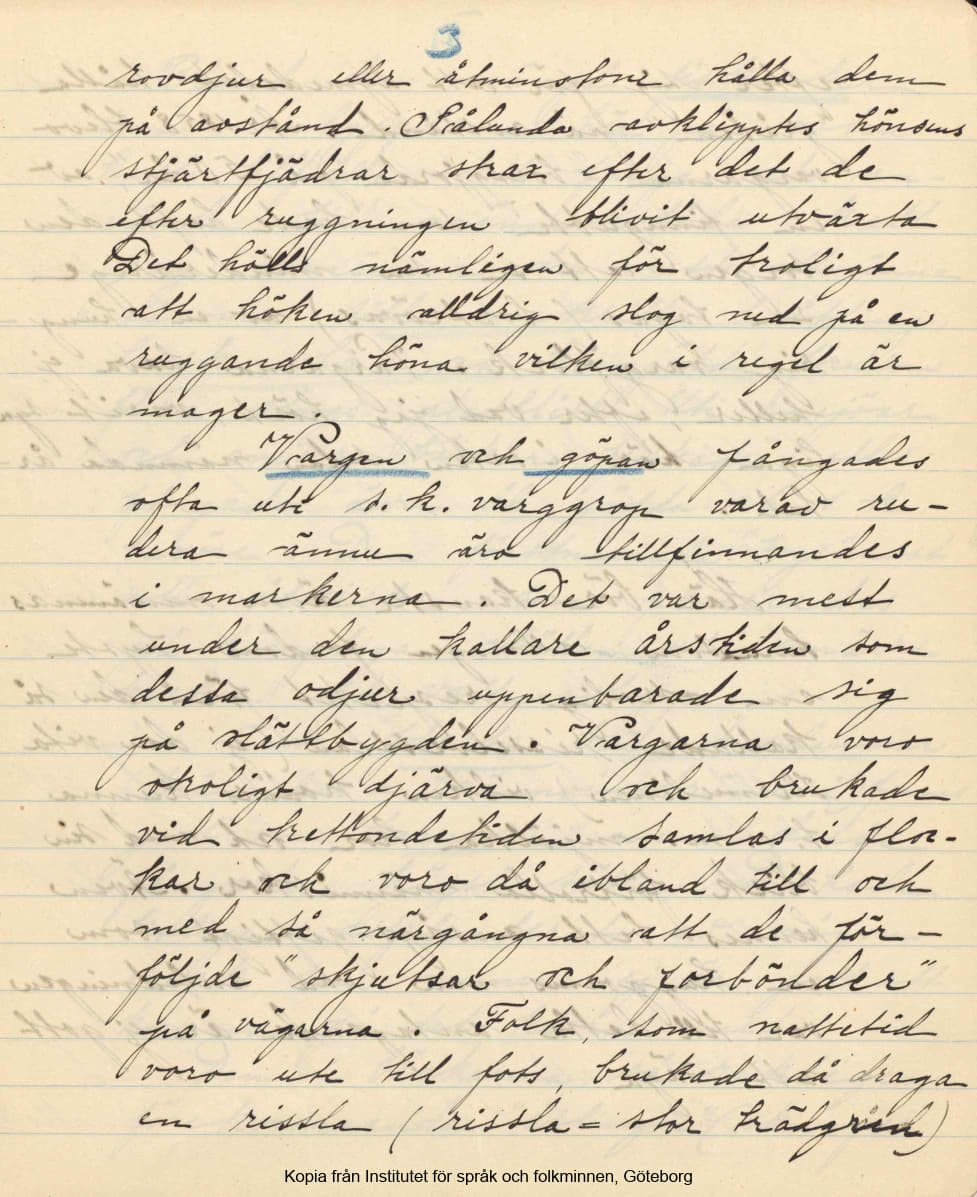 3
rovdjur eller åtminstone hålla dem
på avstånd. Sålunda avklipptes hönsens
stjärtfjädrar strax efter det de
efter ruggningen blivit utväxta
Det hölls nämligen för troligt
att höken alldrig slog ned på en
ruggande höna vilken i regel är
mager.
Vargen och göpan fångades
ofta uti s.k. varggrop varav ru-
dera ännu äro tillfinnandes
i markerna. Det var mest
under den kallare årstiden som
dessa odjur uppenbarade sig
på slättbygden. Vargarna voro
otroligt djärva och brukade
vid trettondetiden samlas i floc-
kar och voro då ibland till och
med så närgångna att de för-
följde "skjutsar och forbönder"
på vägarna. Folk, som nattetid
voro ute till fots, brukade då draga
en rissla (rissla = stor trädgren)
Kopia från Institutet för språk och folkminnen, Göteborg